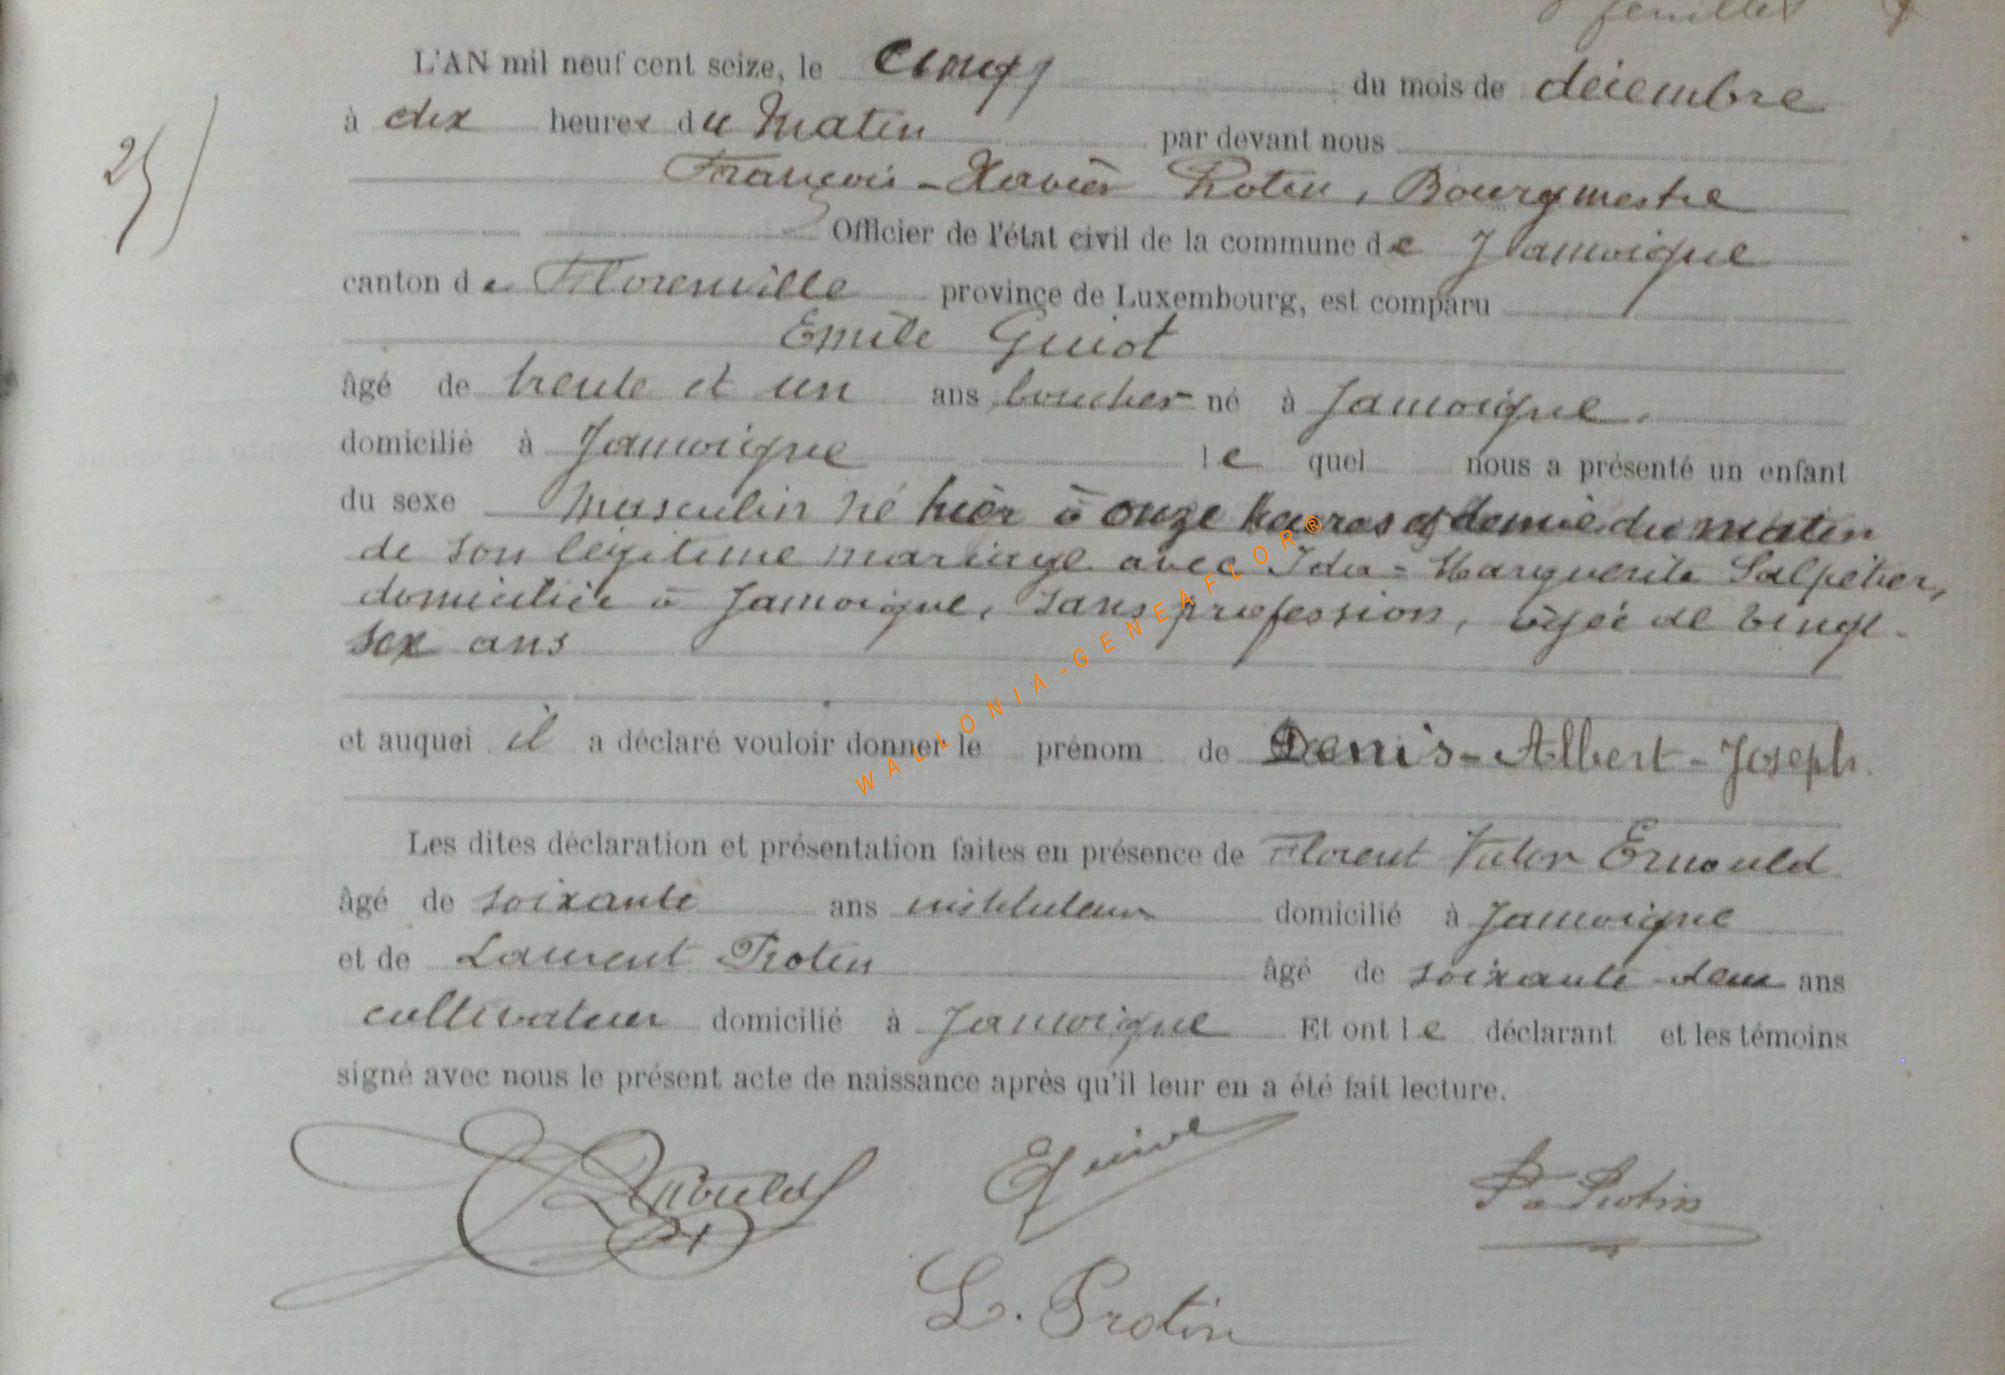 8 feuillet
L'AN mil neuf cent seize, le cinq du mois de décembre
25
à dix heures du Matin par devant nous
François-Xavier Protin, Bourgmestre
Officier de l'état civil de la commune de Jamoigne
canton de Florenville province de Luxembourg, est comparu
Emile Guiot
âgé de trente et un ans boucher né à Jamoigne,
domicilié à Jamoigne lequel nous a présenté un enfant
du sexe Masculin né hier à onze heures et demie du matin
de son légitime mariage avec Ida-Marguerite Salpétier,
domiciliée à Jamoigne, sans profession, âgée de vingt-
six ans
et auquel il a déclaré vouloir donner le prénom de Denis-Albert-Joseph.
Les dites déclaration et présentation faites en présence de Florent Victor Ernould
âgé de soixante ans instituteur domicilié à Jamoigne
et de Laurent Protin âgé de soixante-deux ans
cultivateur domicilié à Jamoigne Et ont le déclarant et les témoins
signé avec nous le présent acte de naissance après qu'il leur en a été fait lecture.
Ernould
L. Protin
WALLONIA-GENEAFLOR®